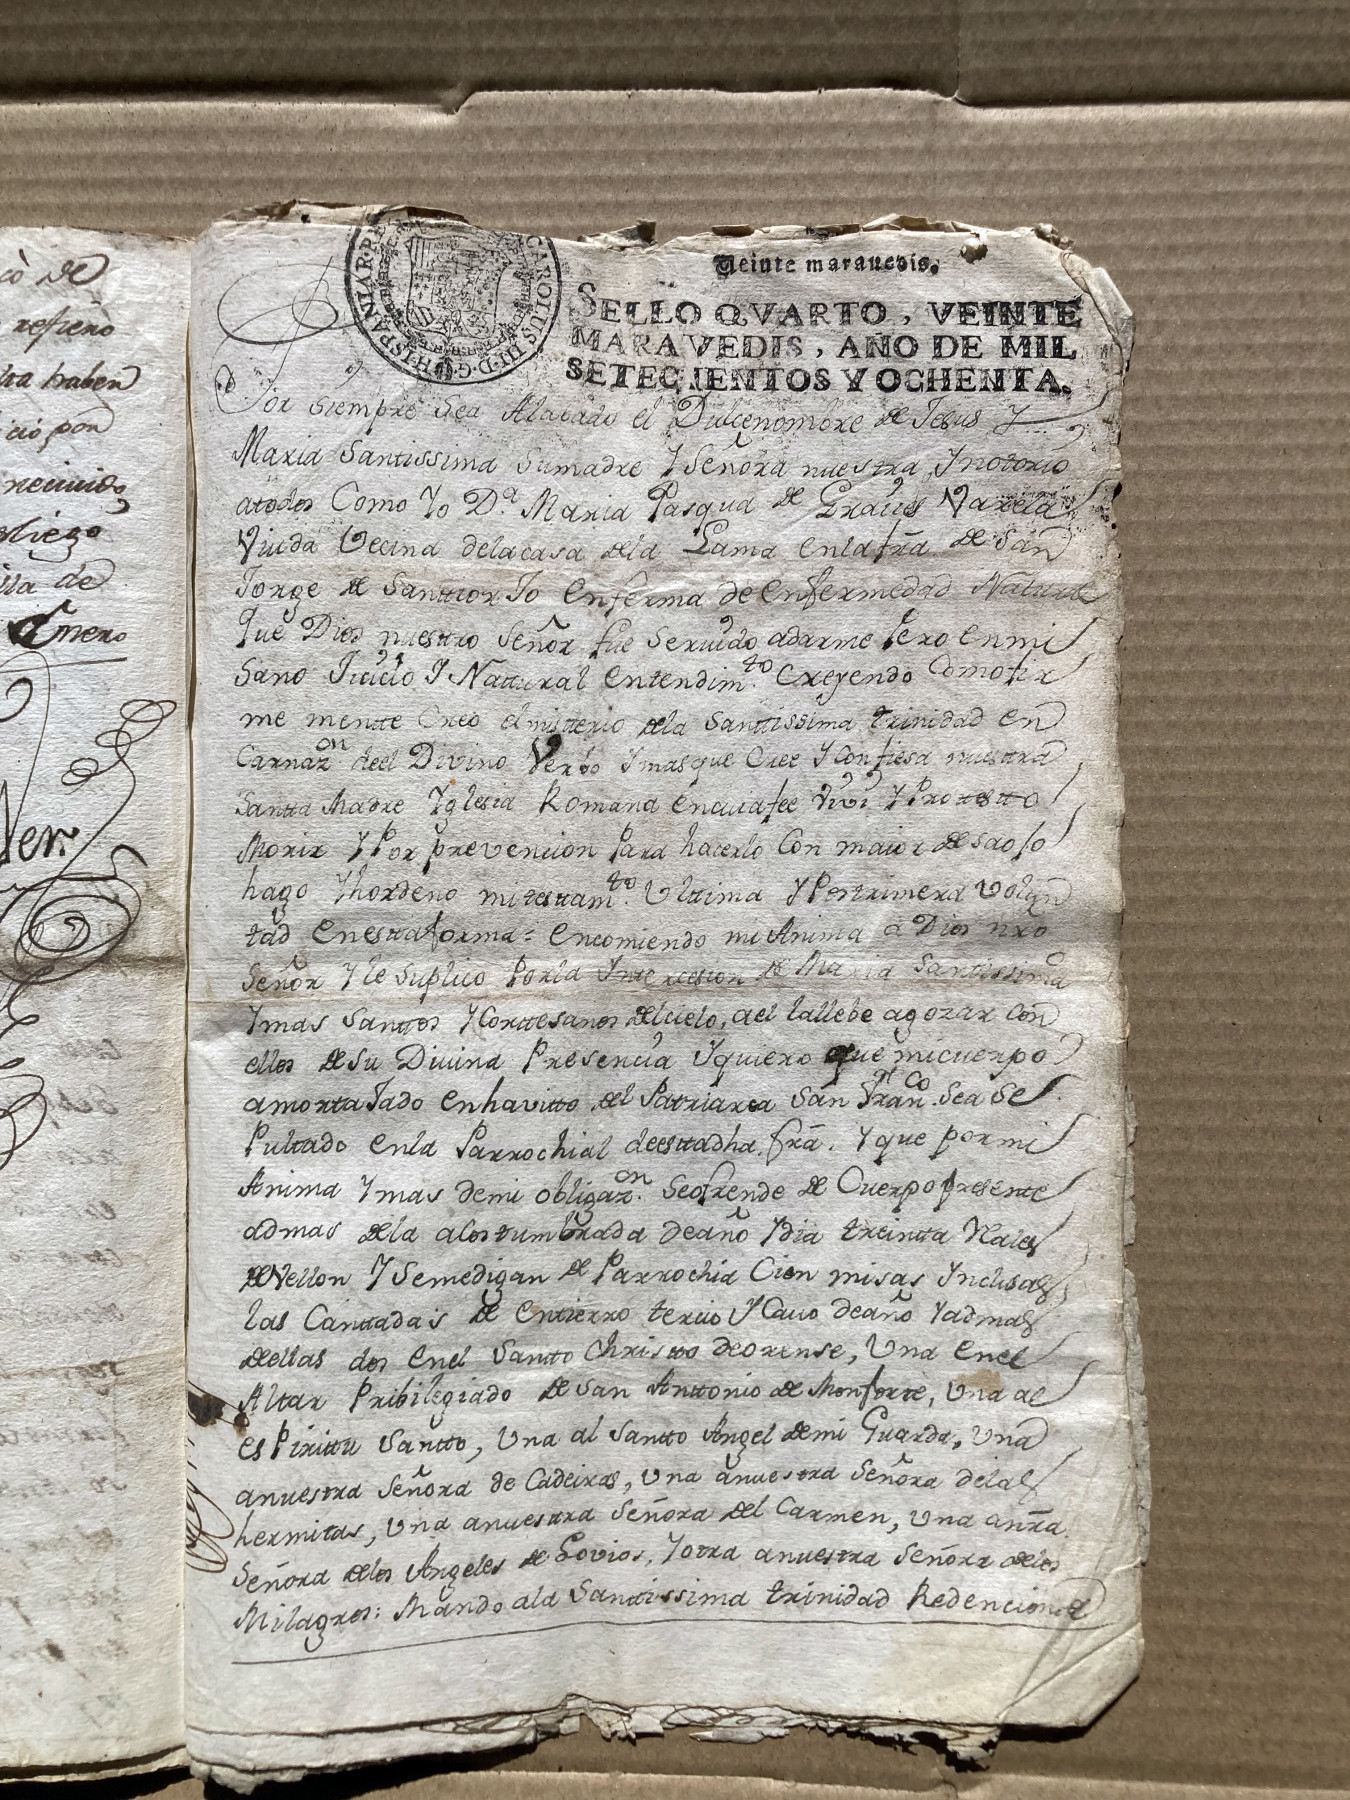 cò de
refieno
haben
ció pon
recivido
pliego
de
Enero
Ver.
HISPANIAR·RE
CAROLUS·III·D·G·
Veinte marauedis.
SELLO QVARTO, VEINTE
MARAVEDIS, AÑO DE MIL
SETECIENTOS Y OCHENTA.
Por siempre Sea Alavado el Dulcenombre de Jesus Y
Maria Santissima Sumadre Y Señora nuestra, Ynotorio
atodos Como Yo D.ª Maria Pasqua de Graües Varela
Viuda Vecina delacasa dela Lama enlafrã de San
Jorge de Santtiorjo enferma de enfermedad Natural
que Dios nuestro Señor fue Servido adarme Pero enmi
Sano Juicio Y Natural entendim.to Creyendo Comofir
me mentte Creo elmistterio dela Santtissima trinidad en
Carnaz.on deel Divino Verbo Ymasque Cree Y Confiesa nuestra
Santta Madre Yglesia Romana encuiafee Vivi Y Protestto
Morir Y Por prevencion Para hacerlo Con maior desaoso
hago Yhordeno mitestam.to Ultima Y Postrimera Volun
tad enestraforma = encomiendo mi Anima a Dios nro
Señor Y le suplico Porla Yntercesion de Maria Santissima
Ymas Santtos Y Corttesanos delcielo, ael lallebe agozar con
ellos de su Divina Presencia Yquiero que micuerpo
amortajado enhavitto del Patriarca San Fran.co Sea Se
Pultado enla Parrochial deesttadha. frã. Y que pormi
Anima Ymas demi obligaz.on Seofrende de Cuerpo presente
admas dela acostumbrada deaño Ydia treintta Rales
deVellon Y Semedigan de Parrochia Cien misas Ynclusas
las Canttadas de entierro tercio Y Cauo deaño Yadmas
deellas dos enel Santto Christo deorense, Una enel
Altar Pribilegiado de San Anttonio de Monforte, Una al
esPirittu Santto, Una al Santto Angel demi Guarda, Una
anuestra Señora de Cadeiras, Una anuestra Señora delas
hermitas, Una anuestra Señora del Carmen, Una anrã
Señora delos Angeles de Lovios, Yotra anuestra Señora delos
Milagros: Mando ala Santtissima trinidad Redencion de